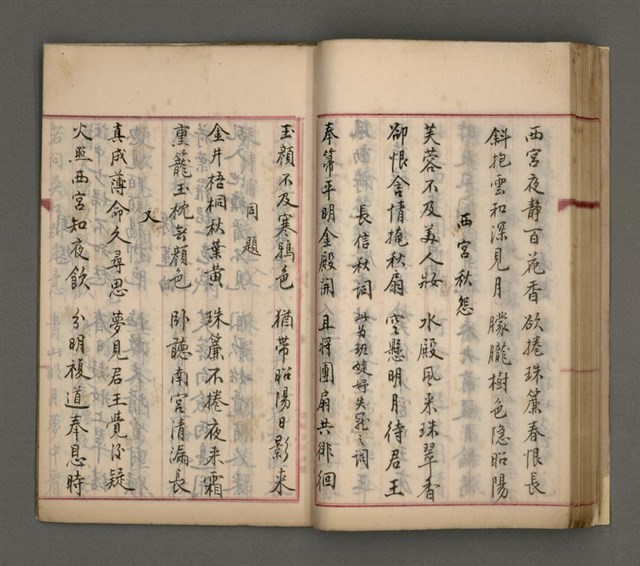 西宮夜静百花香 欲捲珠簾春恨長
斜抱雲和深見月 朦朧樹色隐昭陽
西宮秋怨
芙蓉不及美人妝 水殿風来珠翠香
卻恨含情掩秋扇 空懸明月待君王
長信秋詞 此首班婕妤失寵之詞
奉箒平明金殿開 且将團扇共徘徊
玉顔不及寒鴉色 猶帶昭陽日影来
同題
金井梧桐秋葉黄 珠簾不捲夜来霜
熏籠玉枕無顔色 卧聽南宮清漏長
又
真成薄命久尋思 夢見君王覺後疑
火照西宮知夜飲 分明複道奉恩時